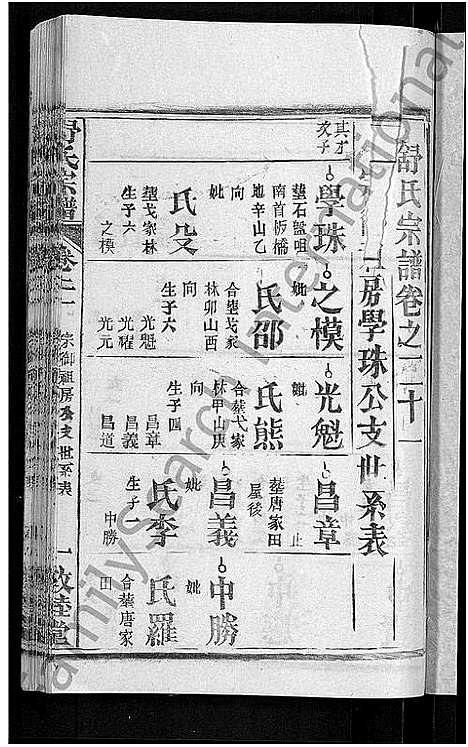 舒氏宗譜卷之二十一
房學珠公支世系表
其才
次子
學珠
墓石監咀
南首板橋
地辛山乙
向
妣
氏殳
墓戈家林
生子六
之模
之模
妣
氏邵
合墓戈家
林卯山酉
向
生子六
光魁
光耀
光元
光魁
妣
氏熊
合墓戈家
林甲山庚
向
生子四
昌章
昌義
昌道
昌章
止
墓唐家田
屋後
昌義
妣
氏李
生子一
中勝
中勝
妣
氏羅
合墓唐家
田
舒氏宗譜
卷二十一
宗御祖房分支世系表
一
敦睦堂
FamilySearch International